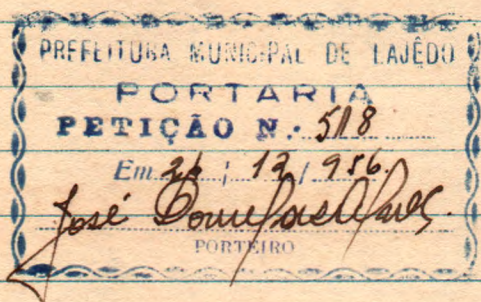 PREFEITURA MUNICIPAL DE LAJÊDO
PORTARIA
PETIÇÃO N.· 518
Em / 12 / 956.
José
PORTEIRO